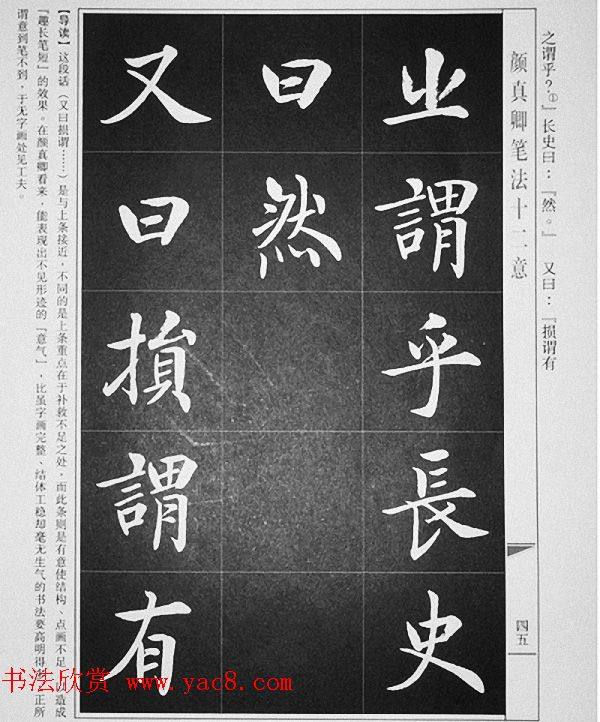 之谓乎?①』长史曰:『然。』 又曰:『损谓有
颜真卿笔法十二意
四五
之謂乎長史
曰然
又曰損謂有
【导读】这段话(又曰损谓……)是与上条接近,不同的是上条重点在于补救不足之处,而此条则是有意使结构、点画不足,以造成
『趣长笔短』的效果。在颜真卿看来,能表现出不见形迹的『意气』,比虽字画完整、结体工稳却毫无生气的书法要高明得 正所
谓意到笔不到,于无字画处见工夫。
书法欣赏 www.yac8.com